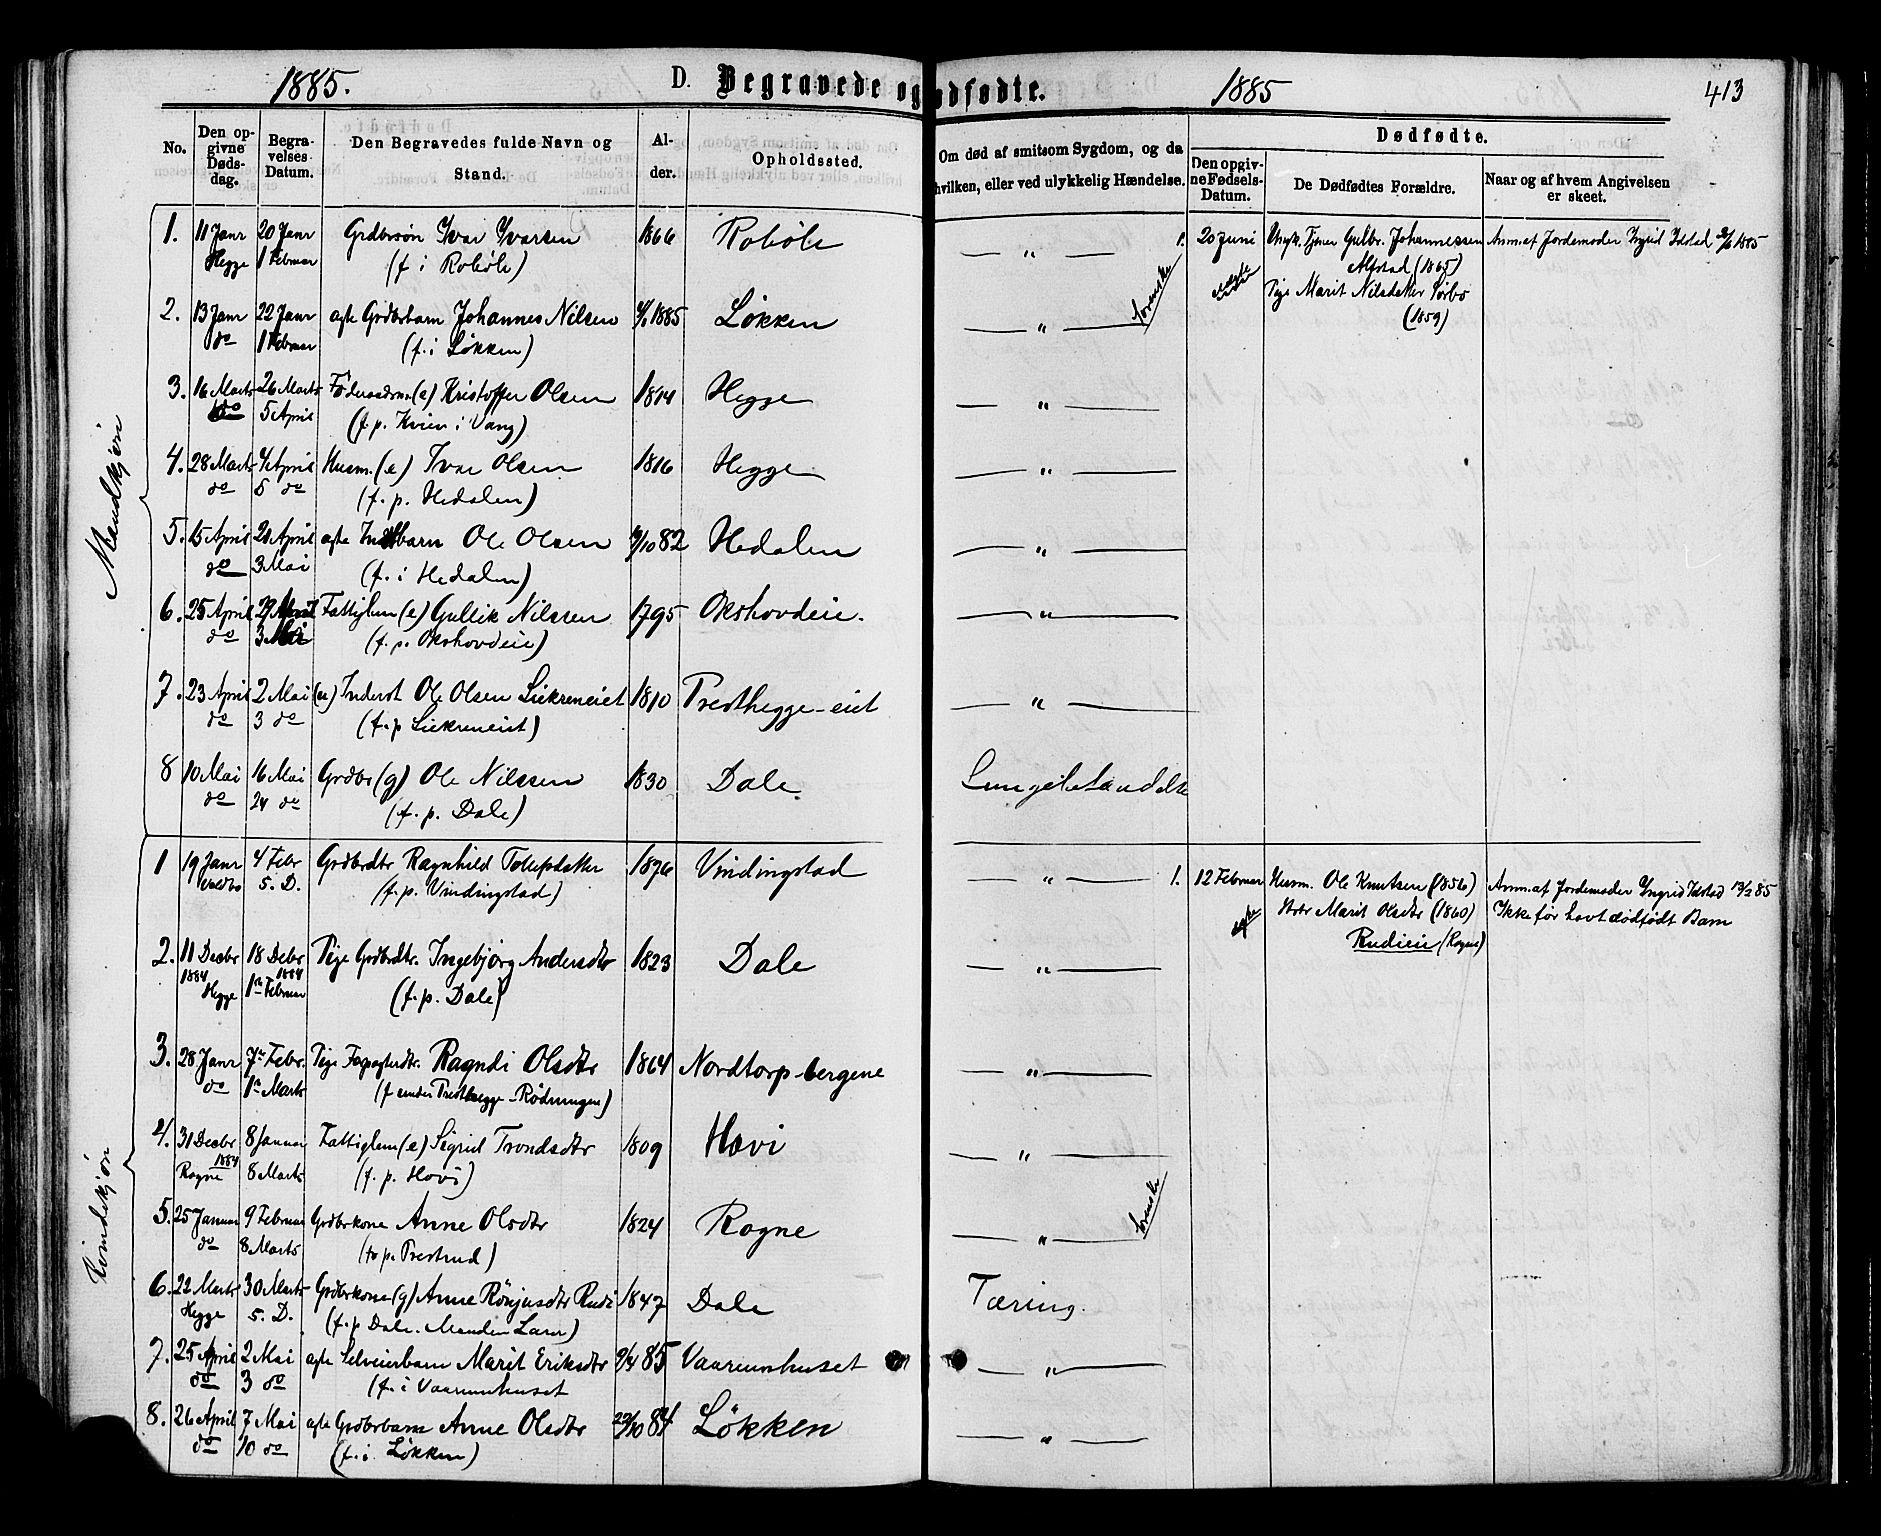 1885.
D. Begravede og
dødfødte.
1885
413
No.
Den op-
givne
Døds-
dag.
Begra-
velses
Datum.
Den Begravedes fulde Navn og
Stand.
Al-
der.
Opholdssted.
Om død af smitsom Sygdom, og da
hvilken, eller ved ulykkelig Hændelse.
Dødfødte.
Den opgiv-
ne Fødsels-
Datum.
De Dødfødtes Forældre.
Naar og af hvem Angivelsen
er skeet.
Mandkjøn
1. 11 Janr 20 Janr Grdbrsøn Ivar Ivarsen 1866 Robøle — " —
Hegge 1 Februar (f. i Robøle)
2. 13 Janr 22 Janr ægte Grdbrbarn Johannes Nilsen 4/1 1885 Løkken — " —
do 1 Februar (f. i Løkken)
3. 16 Marts 26 Marts Føderaadsm (e) Kristoffer Olsen 1814 Hegge — " —
do 5 April (f. p. Kvien i Vang)
4. 28 Marts 4 April Husm. (e) Ivar Olsen 1816 Hegge — " —
do 5 do (f. p. Hedalen)
5. 15 April 21 April ægte Indbarn Ole Olsen /10 82 Hedalen — " —
do 3 Mai (f. i Hedalen)
6. 25 April 29 April Fattiglem (e) Gullik Nilssen 1795 Okshovdeie. — " —
do 3 Mai (f. p. Okshovdeie)
7. 23 April 2 Mai (e) Inderst Ole Olsen Liekreneiet 1810 Presthegge-eiet — " —
do 3 do (f. p. Liekreneiet)
8 10 Mai 16 Mai Grdbr (g) Ole Nilssen 1830 Dale Lungebetændelse
do 24 do (f. p. Dale)
1. 20 Juni Ungk. Tjener Gulbr. Johannessen Anm. af Jordemoder Ingrid Idstad 1885
uægte Alfstad (1865)
Pige Marit Nilsdatter Sørbø
(1859)
Kvindekjøn
1 19 Janr 4 Febr Grdbrdtr Ragnhild Tollefsdatter 1876 Vindingstad — " —
Voldbo 5. D. (f. p. Vindingstad)
2. 11 Decbr 18 Debr Pige Grdbrdtr. Ingebjørg Andersdtr 1823 Dale — " —
1884 1884
Hegge 1ste Februar (f. p. Dale)
3. 28 Janr 7de Febr. Pige Ragndi Olsdtr 1864 Nordtorp-bergene — " —
do 1ste Marts (f under Presthegge-Rødningen)
4. 31 Decbr 8 Januar Fattiglem (e) Sigrid Trondsdtr 1809 Hovi — " —
1884
Rogne 8 Marts (f. p. Hovi)
5. 25 Januar 9 Februar Grdbrkone Anne Olsdtr 1824 Rogne — " —
do 8 Marts (f. p. Prestrud)
6. 22 Marts 30 Marts Grdbrkone (g) Anne Rønjusdtr Rudi 1847 Dale Tæring.
Hegge 5. D. (f. p Dale. Manden Lars)
7. 25 April 2 Mai ægte Selveierbarn Marit Eriksdtr /4 85 Vaarumhuset — " —
do 3 do (f. i Vaarumhuset
8. 26 April 7 Mai ægte Grdbrbarn Anne Olsdtr 22/10 84 Løkken — " —
do 10 do (f. i. Løkken)
1. 12 Februar Husm. Ole Knutsen (1856) Anm. af Jordemoder Ingrid Idstad 13/2 85
ægte Marit Olsdtr (1860) Ikke før havt dødfødt Barn
Rudieie (Rogne)